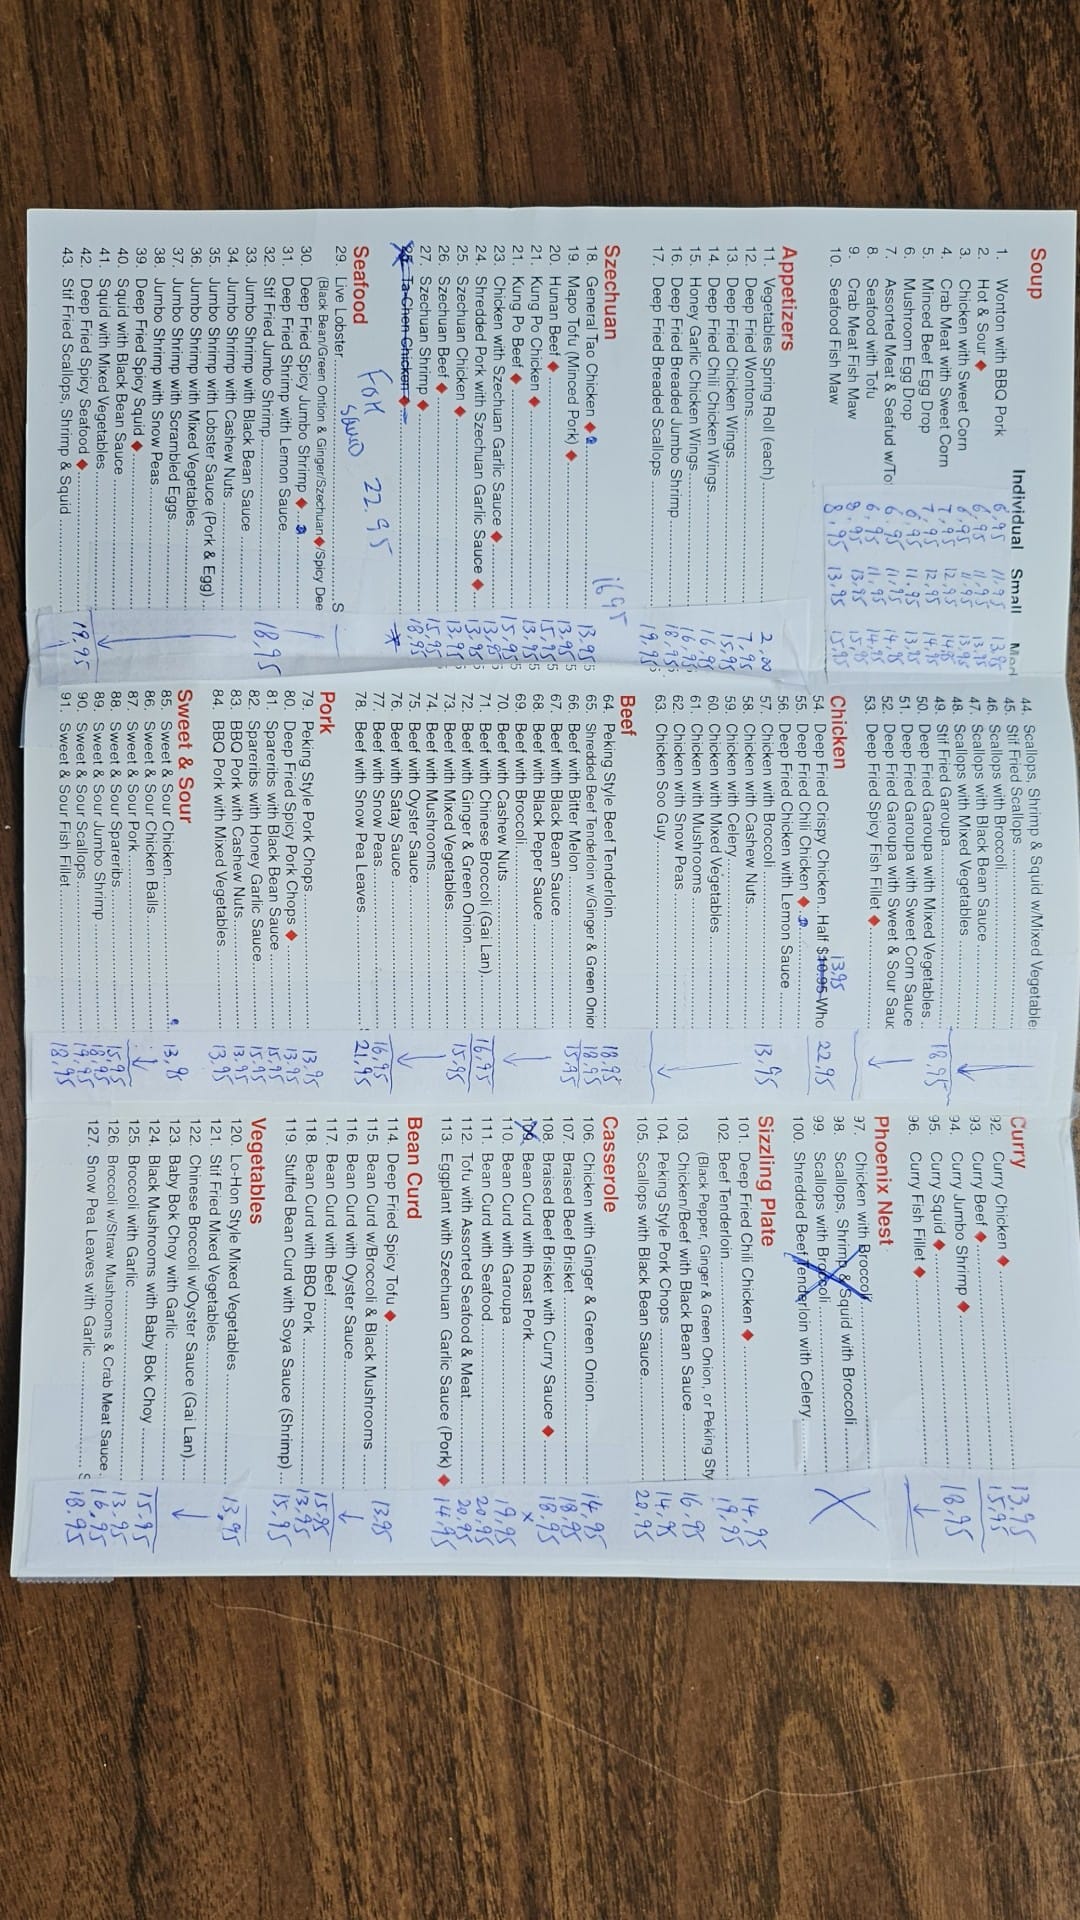 Soup
Individual Small
1. Wonton with BBQ Pork 6.95 11.95 13.95
2. Hot & Sour 6.95 11.95 13.95
3. Chicken with Sweet Corn 6.95 11.95 13.95
4. Crab Meat with Sweet Corn 7.95 12.95 14.95
5. Minced Beef Egg Drop 7.95 12.95 14.95
6. Mushroom Egg Drop 6.95 11.95 13.95
7. Assorted Meat & Seafud w/To 6.95 11.95 14.95
8. Seafood with Tofu 6.95 11.95 14.95
9. Crab Meat Fish Maw 8.95 13.95 15.95
10. Seafood Fish Maw 8.95 13.95 15.95
Appetizers
11. Vegetables Spring Roll (each) 2.00
12. Deep Fried Wontons 7.95
13. Deep Fried Chicken Wings 15.95
14. Deep Fried Chili Chicken Wings 16.95
15. Honey Garlic Chicken Wings 16.95
16. Deep Fried Breaded Jumbo Shrimp 18.95
17. Deep Fried Breaded Scallops 19.95
Szechuan
16.95
18. General Tao Chicken 13.95
19. Mapo Tofu (Minced Pork) 13.95
20. Hunan Beef 15.95
21. Kung Po Chicken 13.95
21. Kung Po Beef 15.95
23. Chicken with Szechuan Garlic Sauce 13.95
24. Shredded Pork with Szechuan Garlic Sauce 13.95
25. Szechuan Chicken 13.95
26. Szechuan Beef 15.95
27. Szechuan Shrimp 18.95
Ta-Chen Chicken
FOR 22.95
Seafood
29. Live Lobster S
(Black Bean/Green Onion & Ginger/Szechuan/Spicy Dee
30. Deep Fried Spicy Jumbo Shrimp
31. Deep Fried Shrimp with Lemon Sauce
32. Stif Fried Jumbo Shrimp 18.95
33. Jumbo Shrimp with Black Bean Sauce
34. Jumbo Shrimp with Cashew Nuts
35. Jumbo Shrimp with Lobster Sauce (Pork & Egg)
36. Jumbo Shrimp with Mixed Vegetables
37. Jumbo Shrimp with Scrambled Eggs
38. Jumbo Shrimp with Snow Peas
39. Deep Fried Spicy Squid
40. Squid with Black Bean Sauce
41. Squid with Mixed Vegetables
42. Deep Fried Spicy Seafood
43. Stif Fried Scallops, Shrimp & Squid 19.95
44. Scallops, Shrimp & Squid w/Mixed Vegetable
45. Stif Fried Scallops
46. Scallops with Broccoli
47. Scallops with Black Bean Sauce
48. Scallops with Mixed Vegetables
49. Stif Fried Garoupa 18.95
50. Deep Fried Garoupa with Mixed Vegetables
51. Deep Fried Garoupa with Sweet Corn Sauce
52. Deep Fried Garoupa with Sweet & Sour Sauc
53. Deep Fried Spicy Fish Fillet
Chicken
13.95
54. Deep Fried Crispy Chicken.. Half $10.95 Who 22.95
55. Deep Fried Chili Chicken
56. Deep Fried Chicken with Lemon Sauce
57. Chicken with Broccoli 13.95
58. Chicken with Cashew Nuts
59. Chicken with Celery
60. Chicken with Mixed Vegetables
61. Chicken with Mushrooms
62. Chicken with Snow Peas
63. Chicken Soo Guy
Beef
64. Peking Style Beef Tenderloin 18.95
65. Shredded Beef Tenderloin w/Ginger & Green Onior 18.95
66. Beef with Bitter Melon 15.95
67. Beef with Black Bean Sauce
68. Beef with Black Peper Sauce
69. Beef with Broccoli
70. Beef with Cashew Nuts
71. Beef with Chinese Broccoli (Gai Lan) 16.95
72. Beef with Ginger & Green Onion 15.95
73. Beef with Mixed Vegetables
74. Beef with Mushrooms
75. Beef with Oyster Sauce
76. Beef with Satay Sauce
77. Beef with Snow Peas 16.95
78. Beef with Snow Pea Leaves 21.95
Pork
79. Peking Style Pork Chops 13.95
80. Deep Fried Spicy Pork Chops 13.95
81. Spareribs with Black Bean Sauce 15.95
82. Spareribs with Honey Garlic Sauce 15.95
83. BBQ Pork with Cashew Nuts 13.95
84. BBQ Pork with Mixed Vegetables 13.95
Sweet & Sour
85. Sweet & Sour Chicken
86. Sweet & Sour Chicken Balls
87. Sweet & Sour Pork
88. Sweet & Sour Spareribs 15.95
89. Sweet & Sour Jumbo Shrimp 18.95
90. Sweet & Sour Scallops 19.95
91. Sweet & Sour Fish Fillet 18.95
Curry
92. Curry Chicken 13.95
93. Curry Beef 15.95
94. Curry Jumbo Shrimp 18.95
95. Curry Squid
96. Curry Fish Fillet
Phoenix Nest
97. Chicken with Broccoli
98. Scallops, Shrimp & Squid with Broccoli
99. Scallops with Broccoli
100. Shredded Beef Tenderloin with Celery
Sizzling Plate
101. Deep Fried Chili Chicken 14.95
102. Beef Tenderloin 19.95
(Black Pepper, Ginger & Green Onion, or Peking Sty
103. Chicken/Beef with Black Bean Sauce 16.95
104. Peking Style Pork Chops 14.95
105. Scallops with Black Bean Sauce 20.95
Casserole
106. Chicken with Ginger & Green Onion 14.95
107. Braised Beef Brisket 18.95
108. Braised Beef Brisket with Curry Sauce 18.95
109. Bean Curd with Roast Pork x
110. Bean Curd with Garoupa 19.95
111. Bean Curd with Seafood 20.95
112. Tofu with Assorted Seafood & Meat 20.95
113. Eggplant with Szechuan Garlic Sauce (Pork) 14.95
Bean Curd
114. Deep Fried Spicy Tofu 13.95
115. Bean Curd w/Broccoli & Black Mushrooms
116. Bean Curd with Oyster Sauce
117. Bean Curd with Beef 15.95
118. Bean Curd with BBQ Pork 13.95
119. Stuffed Bean Curd with Soya Sauce (Shrimp) 15.95
Vegetables
120. Lo-Hon Style Mixed Vegetables 13.95
121. Stif Fried Mixed Vegetables
122. Chinese Broccoli w/Oyster Sauce (Gai Lan)
123. Baby Bok Choy with Garlic
124. Black Mushrooms with Baby Bok Choy 15.95
125. Broccoli with Garlic 13.95
126. Broccoli w/Straw Mushrooms & Crab Meat Sauce 16.95
127. Snow Pea Leaves with Garlic 18.95